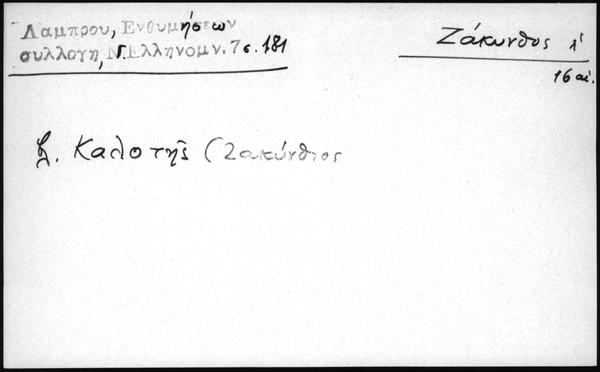 Λάμπρου, Ενθυμήσεων
συλλογη, Ν. Ελληνομν. 7 σ. 181
Ζάκυνθος
16 αι.
Καλοτης (Ζακύνθιος